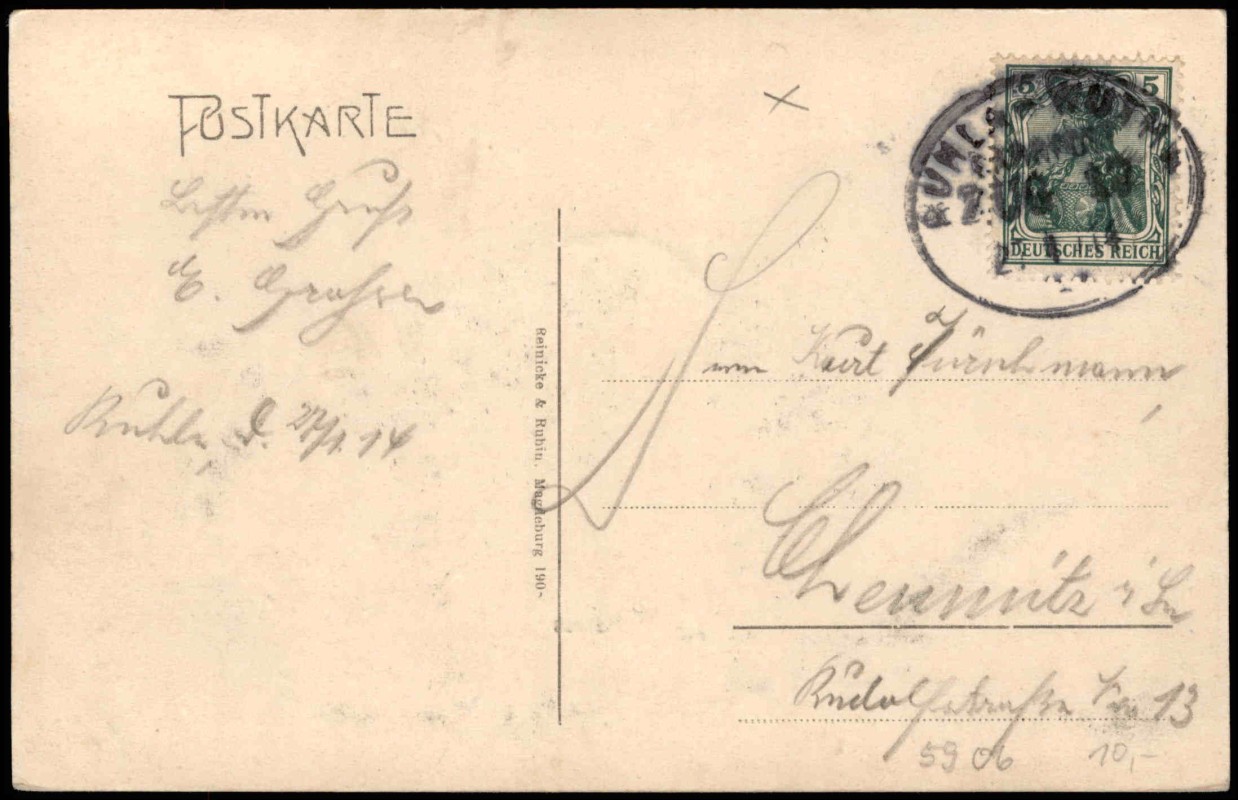 POSTKARTE
Besten Gruß
E.
Ruhla, d. 27/1. 14.
Reinicke & Rubin, Magdeburg 190
5 5
DEUTSCHES REICH
RUHLA
ZUG
Herrn Kurt
Chemnitz i/Sa
Rudolfstraße No 13
5906 10,-